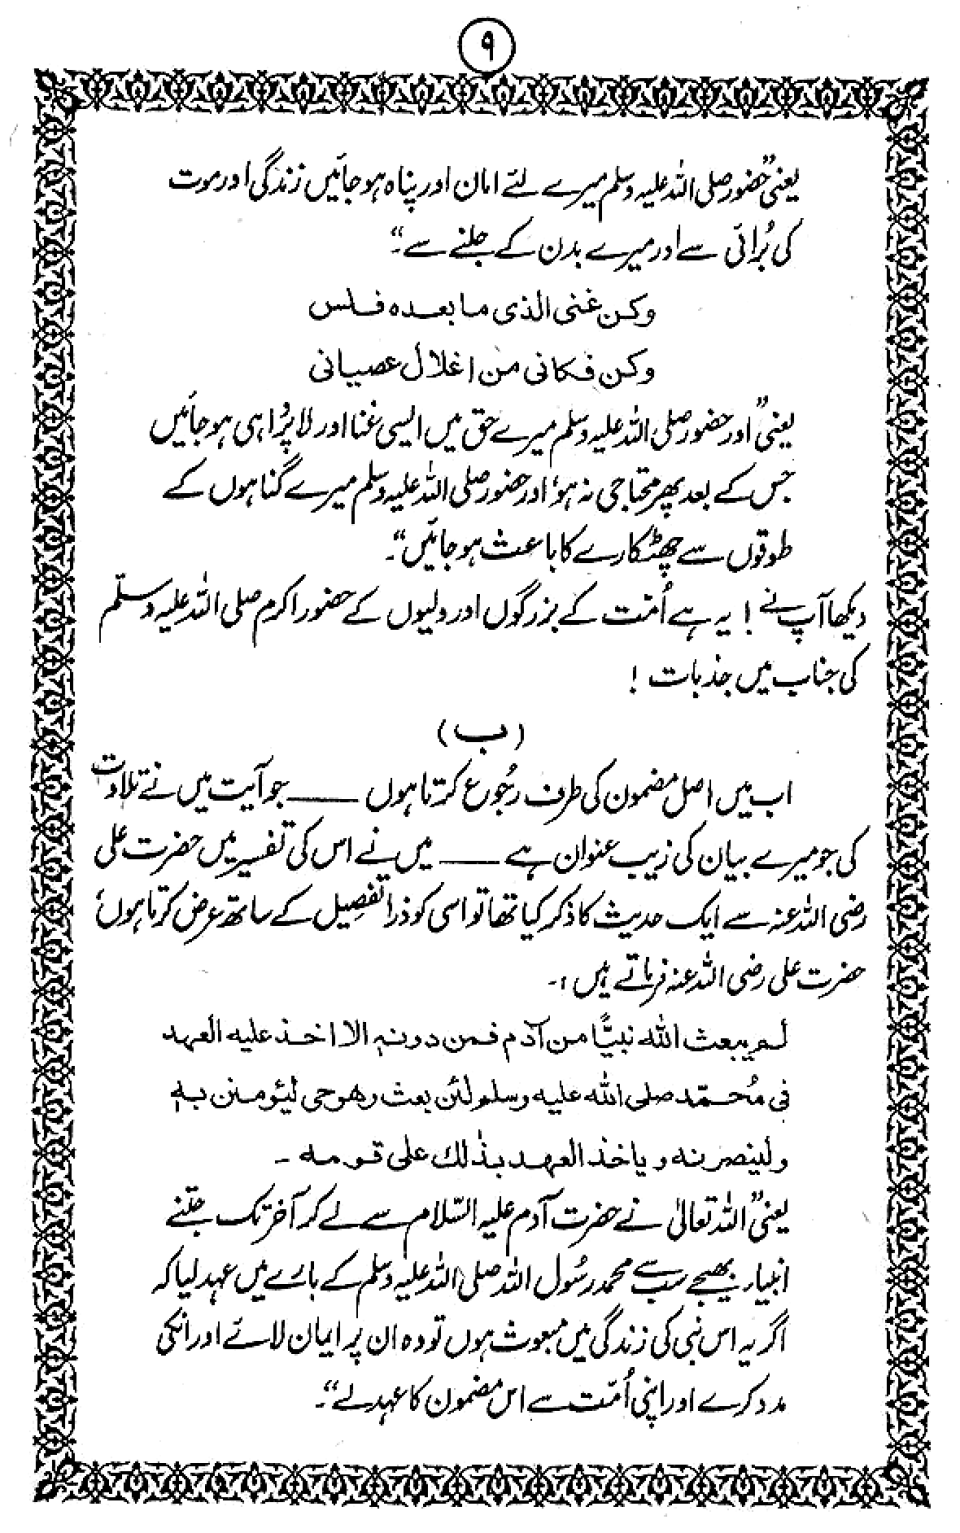 ۹
یعنی "حضور صلی اللہ علیہ وسلم میرے لئے امان اور پناہ ہو جائیں زندگی اور موت
کی بُرائی سے اور میرے بدن کے جلنے سے"۔
وکن غنی الذی ما بعدہ فلس
وکن فکانی من اغلال عصیانی
یعنی "اور حضور صلی اللہ علیہ وسلم میرے حق میں ایسی غنا اور لاپرواہی ہو جائیں
جس کے بعد پھر محتاجی نہ ہو، اور حضور صلی اللہ علیہ وسلم میرے گناہوں کے
طوقوں سے چھٹکارے کا باعث ہو جائیں"۔
دیکھا آپ نے! یہ ہے اُمّت کے بزرگوں اور ولیوں کے حضور اکرم صلی اللہ علیہ وسلّم
کی جناب میں جذبات!
(ب)
اب میں اصل مضمون کی طرف رجُوع کرتا ہوں ـــــ جو آیت میں نے تلاوت
کی جو میرے بیان کی زیب عنوان ہے ـــــ میں نے اس کی تفسیر میں حضرت علی
رضی اللہ عنہ سے ایک حدیث کا ذکر کیا تھا تو اسی کو ذرا تفصیل کے ساتھ عرض کرتا ہوں،
حضرت علی رضی اللہ عنہ فرماتے ہیں :۔
لم یبعث اللہ نبیًّا من آدم فمن دونہٖ الا اخذ علیہ العہد
فی مُحمّد صلی اللہ علیہ وسلم لئن بعث وھو حی لیؤمنن بہٖ
ولینصرنہ ویاخذ العہد بذٰلک علی قومہ ۔
یعنی "اللہ تعالیٰ نے حضرت آدم علیہ السّلام سے لے کر آخر تک جتنے
انبیاء بھیجے سب سے محمد رسُول اللہ صلی اللہ علیہ وسلم کے بارے میں عہد لیا کہ
اگر یہ اس نبی کی زندگی میں مبعوث ہوں تو وہ ان پر ایمان لائے اور انکی
مدد کرے اور اپنی اُمّت سے اس مضمون کا عہد لے"۔